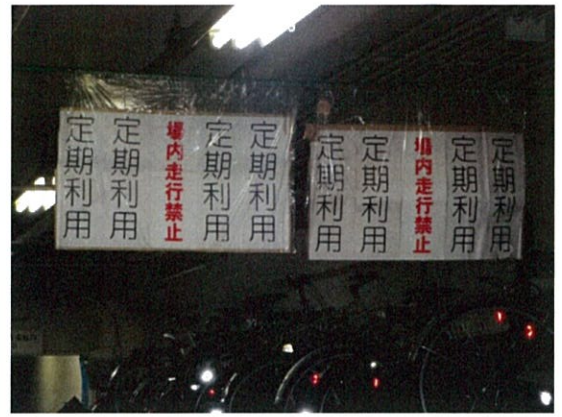 定期利用
定期利用
場内走行禁止
定期利用
定期利用
定期利用
定期利用
場内走行禁止
定期利用
定期利用